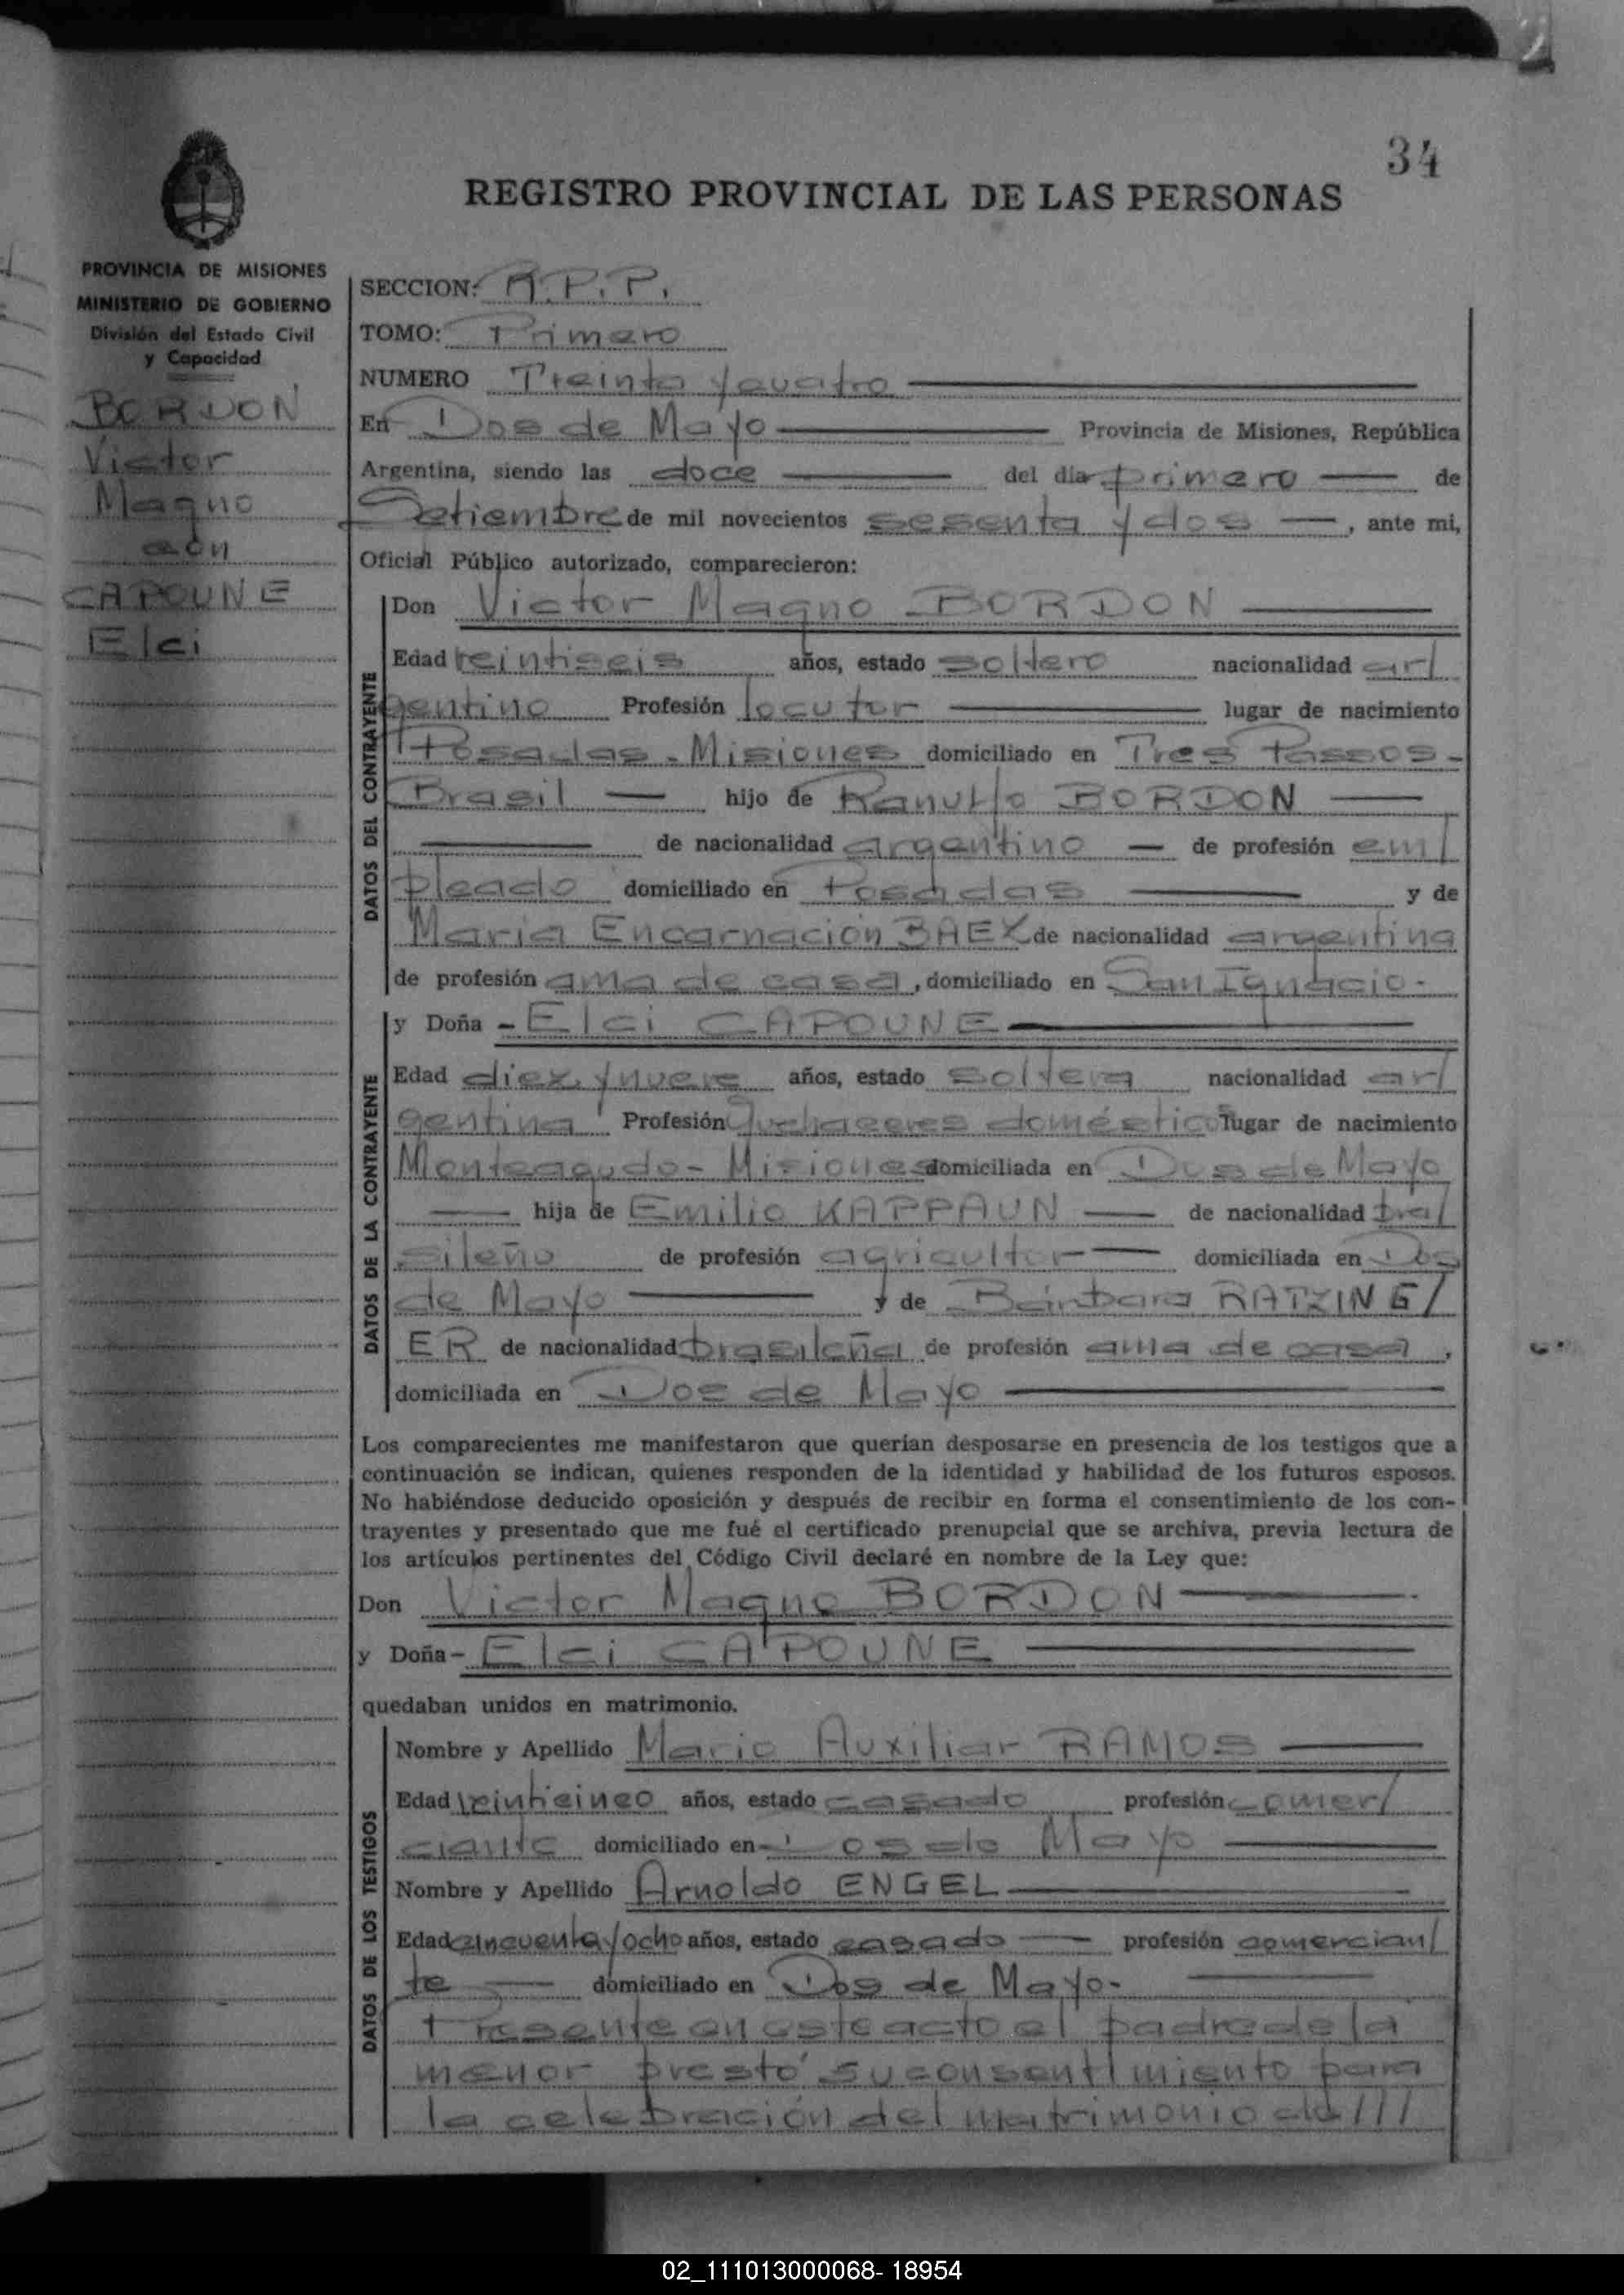 34
REGISTRO PROVINCIAL DE LAS PERSONAS
PROVINCIA DE MISIONES
MINISTERIO DE GOBIERNO
División del Estado Civil
y Capacidad
BORDON
Victor
Magno
con
CAPOUNE
Elci
SECCION: R.P.P.
TOMO: Primero
NUMERO Treinta y cuatro
En Dos de Mayo Provincia de Misiones, República
Argentina, siendo las doce del día primero de
Setiembre de mil novecientos sesenta y dos, ante mi,
Oficial Público autorizado, comparecieron:
DATOS DEL CONTRAYENTE
Don Victor Magno BORDON
Edad veintiseis años, estado soltero nacionalidad ar/
gentino Profesión locutor lugar de nacimiento
Posadas - Misiones domiciliado en Tres Passos -
Brasil hijo de Ranulfo BORDON
de nacionalidad argentino de profesión em/
pleado domiciliado en Posadas y de
Maria Encarnación BAEZ de nacionalidad argentina
de profesión ama de casa, domiciliado en San Ignacio.
DATOS DE LA CONTRAYENTE
y Doña - Elci CAPOUNE
Edad diez y nueve años, estado soltera nacionalidad ar/
gentina Profesión Quehaceres domésticos lugar de nacimiento
Monteagudo - Misiones domiciliada en Dos de Mayo
hija de Emilio KAPPAUN de nacionalidad bra/
sileño de profesión agricultor domiciliada en Dos
de Mayo y de Bárbara RATZING/
ER de nacionalidad brasileña de profesión ama de casa,
domiciliada en Dos de Mayo
Los comparecientes me manifestaron que querían desposarse en presencia de los testigos que a
continuación se indican, quienes responden de la identidad y habilidad de los futuros esposos.
No habiéndose deducido oposición y después de recibir en forma el consentimiento de los con-
trayentes y presentado que me fué el certificado prenupcial que se archiva, previa lectura de
los artículos pertinentes del Código Civil declaré en nombre de la Ley que:
Don Victor Magno BORDON
y Doña - Elci CAPOUNE
quedaban unidos en matrimonio.
DATOS DE LOS TESTIGOS
Nombre y Apellido Mario Auxiliar RAMOS
Edad veinticinco años, estado casado profesión comer/
ciante domiciliado en Dos de Mayo
Nombre y Apellido Arnoldo ENGEL
Edad cincuenta y ocho años, estado casado profesión comercian/
te domiciliado en Dos de Mayo.
Presente en este acto el padre de la
menor prestó su consentimiento para
la celebración del matrimonio de ///
02_111013000068- 18954